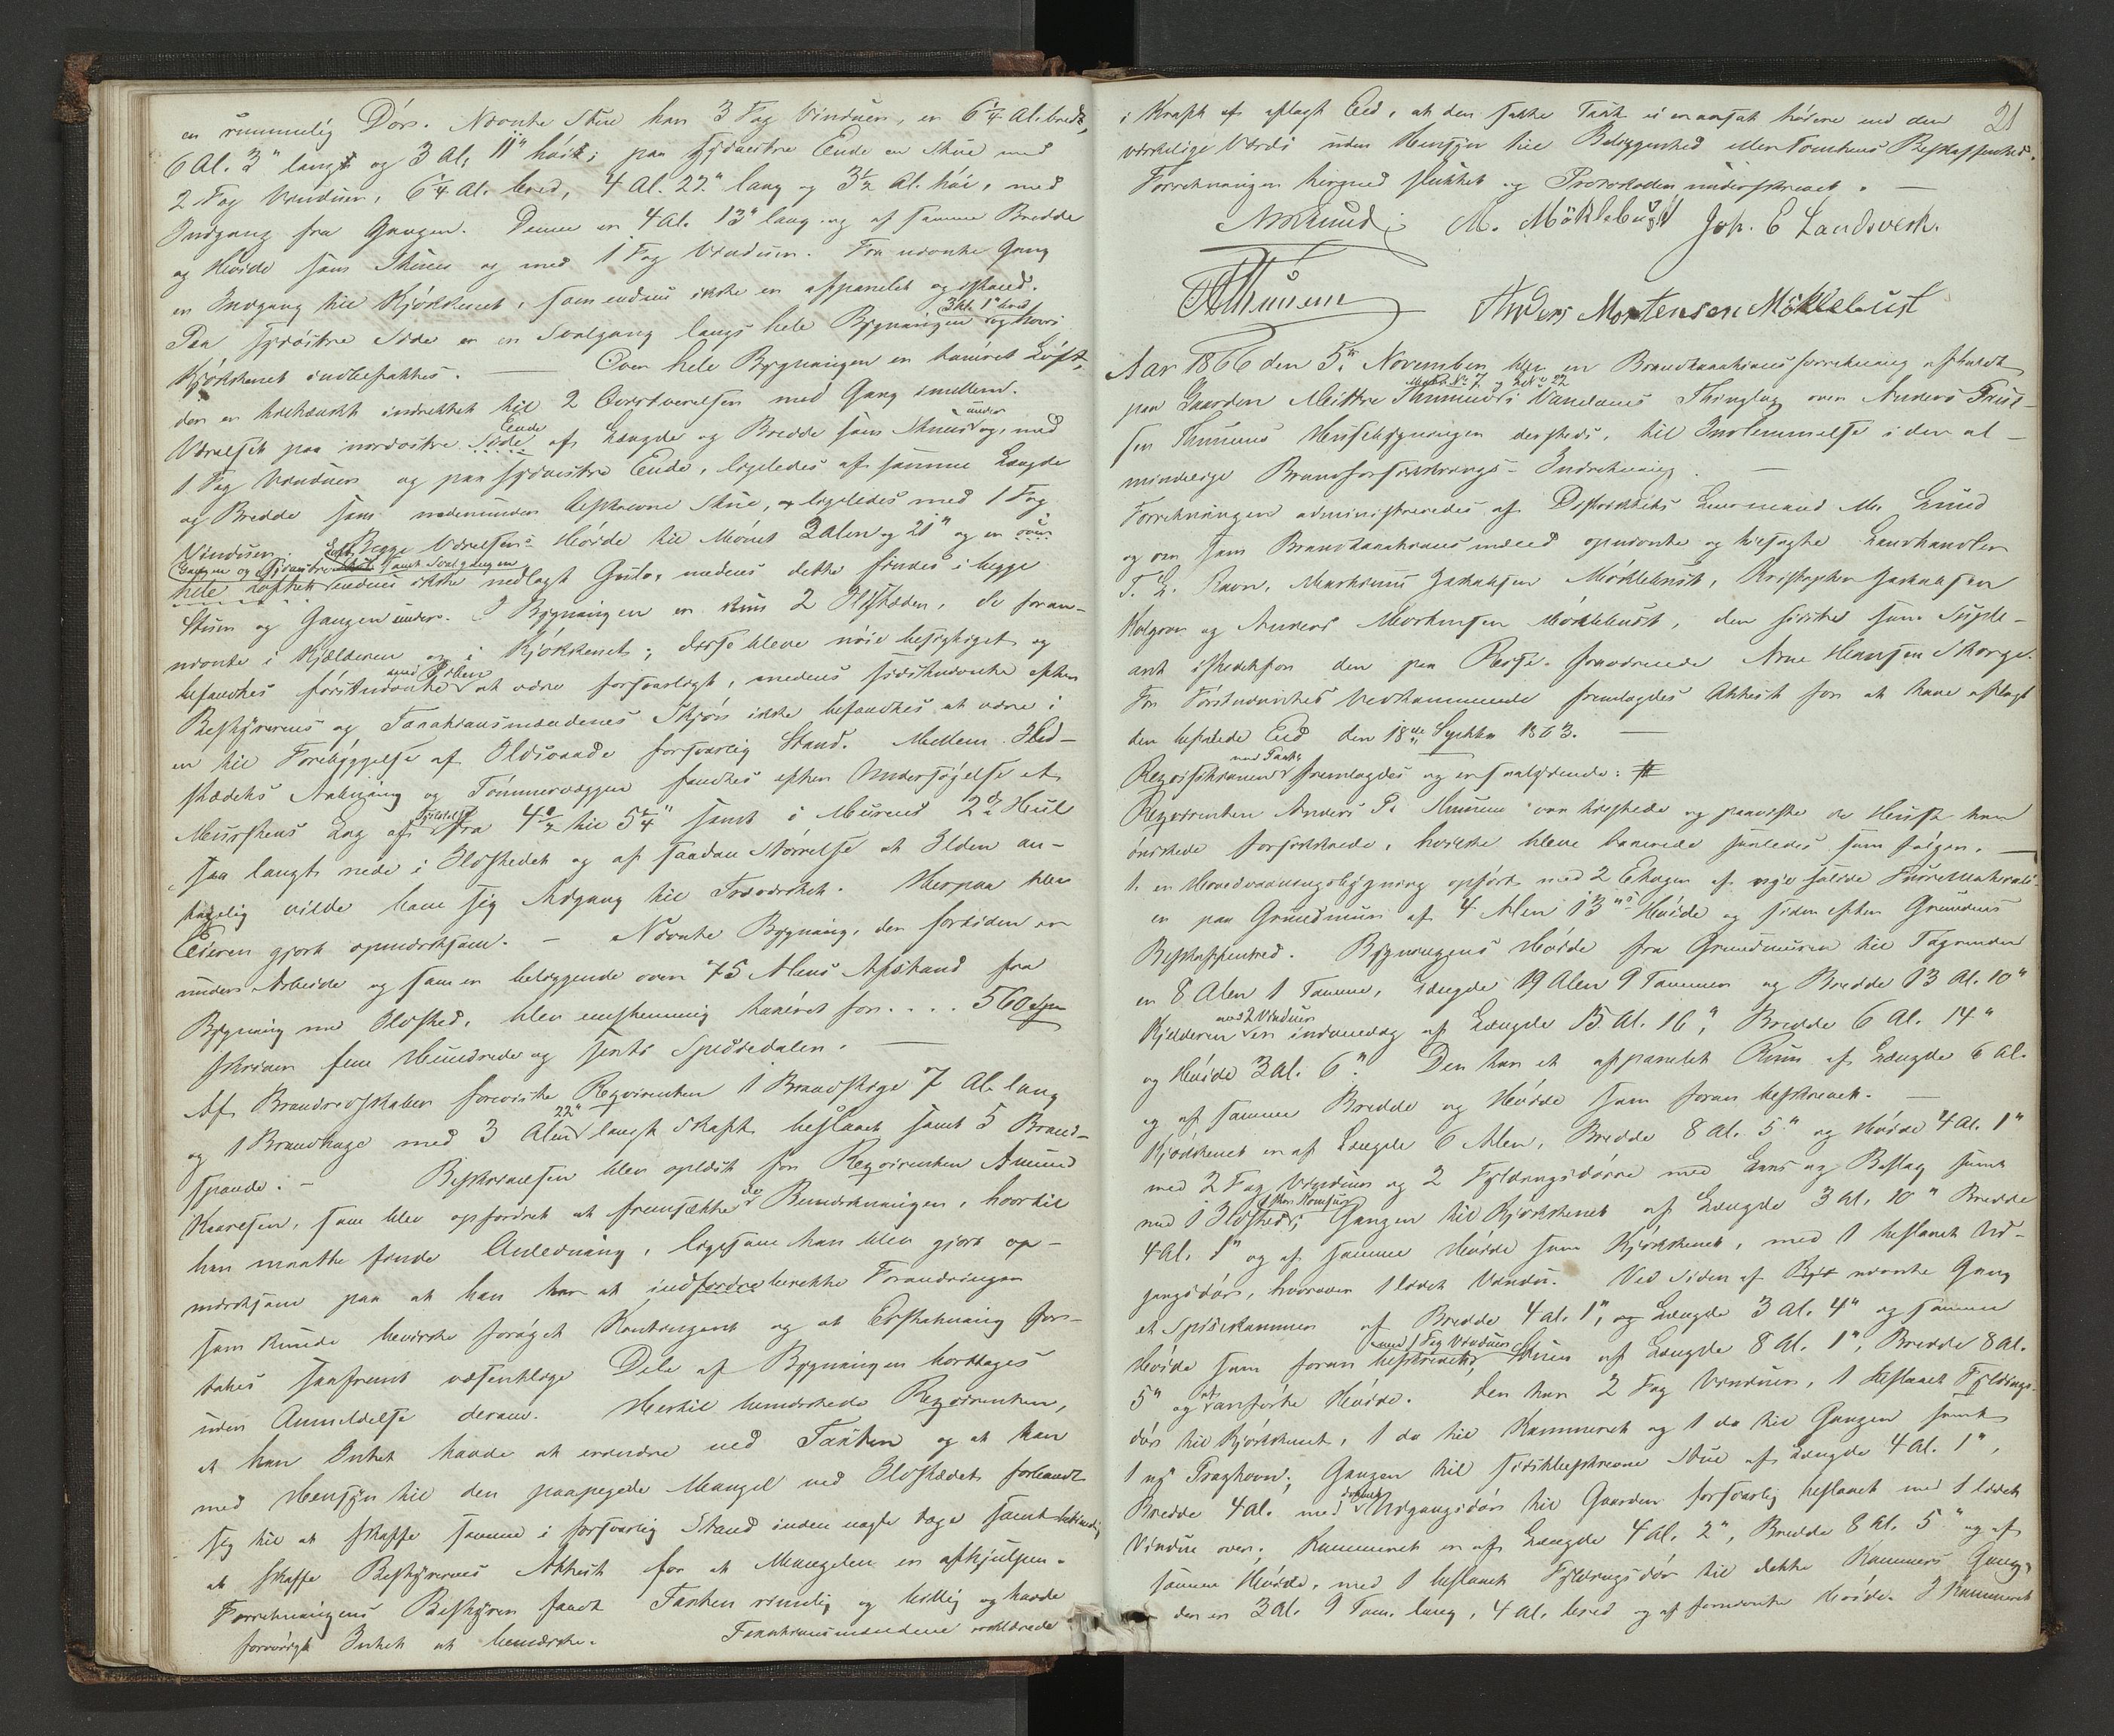 en rummelig Dör. Nævnte Stue har 3 Fag Vinduer, er 6 1/4 Al. bred,
6 Al. 3" lang og 3 Al. 11" höi; paa sydvestre Ende en Stue med
2 Fag Vinduer, 6 1/4 Al. bred, 4 Al. 22" lang og 3 1/2 Al. höi, med
Indgang fra Gangen. Denne er 4 Al. 13" lang og af samme Bredde
og Höide som Stuen og med 1 Fag Vinduer. Fra nævnte Gang
er Indgang til Kjökkenet, som endnu ikke er afpanelet og istand.
3 Al. 1" bred
Paa sydöstre Side er en Svalgang langs hele Bygningen og hvori
Kjökkenet indbefattes. — Over hele Bygningen er tomret Loft,
der er indrettet til 2 Værelser med Gang imellem.
Ende under
Værelset paa nordostre Side af Længde og Bredde som Stuen og med
1 Fag Vinduer og paa sydvestre Ende, ligeledes af samme Længde
og Bredde som nedenunder beskrevne Stue, ligeledes med 1 Fag
Vinduer. Begge Værelsers Höide til Mönet 3 Alen og 21" og er over
Gangen og samt Svalgangen
hele Loftet endnu ikke nedlagt Gulv, medens dette findes i begge
Stuer og Gangen under. I Bygningen er kun 2 Ildsteder, de foran-
nævnte i Kjælderen og i Kjökkenet; disse bleve nöie besigtiget og
med Piben
befandtes förstnævnte at være forsvarligt, medens sidstnævnte efter
Bestyrerens og Taxationsmændenes Skjön ikke befandtes at være i
en til Forebyggelse af Ildsvaade forsvarlig Stand. Mellem Ild-
stedets Anbringning og Tömmervæggen fandtes efter Undersögelse et
Murstens Lag af fra 4 1/2 til 5 1/4" samt i Murens 2de Hul
saa langt nede i Ildstedet og af saadan Störrelse at Ilden an-
tagelig vilde bane sig Adgang til Træværket. Herpaa blev
Eieren gjort opmærksom. — Nævnte Bygning, der fortiden er
under Arbeide og som er beliggende over 75 Alens Afstand fra
Bygning med Ildsted, blev enstemmig taxeret for .... 560 Spd
skriver fem Hundrede og sexti Speciedaler. —
Af Brandredskaber foreviste Reqvirenten 1 Brandstige 7 Al. lang
22"
og 1 Brandhage med 3 Alen langt Skaft beslaaet samt 5 Brand-
spande. — Beskrivelsen blev oplæst for Reqvirenten Amund
de
Kaaresen, som blev opfordret at fremsætte Bemærkninger, hvortil
han maatte finde Anledning, ligesom han blev gjort op-
mærksom paa at han har at indberette Forandringer
som kunde bevirke foröget Kontingent og at Erstatning for-
tabes saafremt væsentlige Dele af Bygningen borttages
uden Anmeldelse derom. Hertil bemærkede Reqvirenten,
at han Intet havde at erindre ved Taxten og at han
med Hensyn til den paapegede Mangel ved Ildstedet forbandt
sig til at skaffe samme i forsvarlig Stand inden nogle Dage samt
at skaffe Bestyrerens Attest for at Mangelen er afhjulpen.
Forretningens Bestyrer fandt Taxten rimelig og billig og havde
forövrigt Intet at bemærke. Taxationsmændene erklærede
21
i Kraft af aflagt Eed, at den satte Taxt ei er ansat höiere end den
virkelige Værdi uden Hensyn til Beliggenhed eller Tomtens Beskaffenhed.
Forretningen hermed sluttet og Protokollen underskrevet. —
M. Möklebust Joh. E Landsverk.
Anders Mortensen Möklebust
Aar 1866 den 5te November blev en Brandtaxationsforretning afholdt
Matr No 7 og LNo 22
paa Gaarden Mittre Thunem i Vanelvens Thinglag over Anders
sen Thunems Huusebygninger dersteds, til Indlemmelse i den al-
mindelige Brandforsikkrings-Indretning. —
Forretningen administreredes af Distriktets Lensmand M. Lund
og var som Brandtaxationsmænd opnævnte og tilsagte Landhandler
T. L. Ravn, Markus Jakobsen Möklebust, Kristopher Jakobsen
Kolgrov og Anders Mortensen Möklebust, den sidste som Suple-
ant istedetfor den paa Reise fraværende Arne Hansen Skorge.
For Förstnævntes Vedkommende fremlagdes Attest for at have aflagt
den befalede Eed den 18de Septbr 1863. —
med Paategn
Reqvisitionen fremlagdes og er saalydende: #
Reqvirenten Anders P. Thunem var tilstede og paaviste de Huse han
önskede forsikkrede, hvilke bleve taxerede saaledes som fölger. —
1. en Hovedvaaningsbygning opfört med 2 Etager af nye solide Furrematerial-
er paa Grundmuur af 4 Alen 13"s Höide og siden efter Grundens
Beskaffenhed. Bygningens Höide fra Grundmuren til Tagrenden
er 8 Alen 1 Tomme, Længde 19 Alen 9 Tommer og Bredde 13 Al. 10"
med 2 Vinduer
Kjelderen er indvendig af Længde 15 Al. 16", Bredde 6 Al. 14"
og Höide 3 Al. 6". Den har et afpanelet Rum af Længde 6 Al.
og af samme Bredde og Höide som foran beskrevet. —
Kjökkenet er af Længde 6 Alen, Bredde 8 Al. 5" og Höide 4 Al. 1"
med 2 Fag Vinduer og 2 Fyldingsdörre med Laas og Beslag samt
med 1 Ildsted; Gangen til Kjökkenet af Længde 3 Al. 10" Bredde
4 Al. 1" og af samme Höide som Kjökkenet, med 1 beslaaet Ud-
gangsdör, hvorover 1 lidet Vindu. Ved Siden af nævnte Gang
et Spisekammer af Bredde 4 Al. 1", og Længde 3 Al. 4" og samme
med 1 Fag Vinduer
Höide som foran beskrevet; Stuen af Længde 8 Al. 1", Bredde 8 Al.
5" og anförte Höide. Den har 2 Fag Vinduer, 1 beslaaet Fyldings-
dör til Kjökkenet, 1 do til Kammeret og 1 do til Gangen samt
1 ny Tragkovn; Gangen til sidstbeskrevne Stue af Længde 4 Al. 1",
dobbelt
Bredde 4 Al. med Udgangsdör til Gaarden forsvarlig beslaaet med 1 lidet
Vindue over; Kammeret er af Længde 4 Al. 2", Bredde 8 Al. 5" og af
samme Höide, med 1 beslaaet Fyldingsdör til dette Kammers Gang,
der er 3 Al. 9 Tom. lang, 4 Al. bred og af fornævnte Höide. I Kammeret